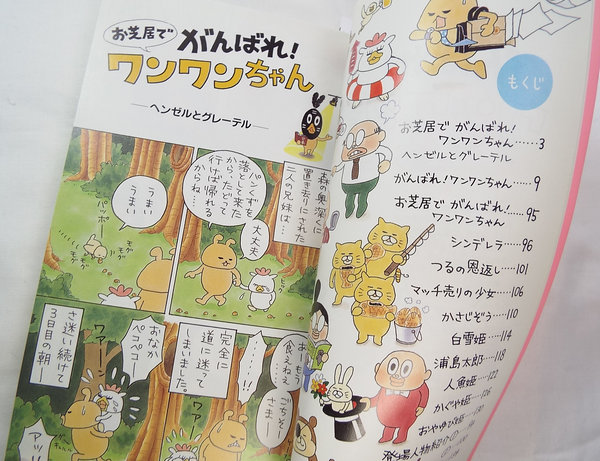 お芝居で
がんばれ!
ワンワンちゃん
―ヘンゼルとグレーテル―
森の奥深くに
置き去りにされた
二人の兄妹は…
大丈夫
パンくずを
落として来た
から、たどって
行けば帰れる
からね…
うまい
うまい
パッポー
モグ
モグ
モグ
……!!
完全に
道に迷って
しまいました。
ワァー
ワァーン
おなか
ペコペコー
さ迷い続けて
3日目の朝
おー
もう
食えねえ
ごちそー
さま…
もくじ
お芝居で がんばれ!
ワンワンちゃん……3
ヘンゼルとグレーテル
がんばれ!ワンワンちゃん……9
お芝居で がんばれ!
ワンワンちゃん……95
シンデレラ……96
つるの恩返し……101
マッチ売りの少女……106
かさじぞう……110
白雪姫……114
浦島太郎……118
人魚姫……122
かぐや姫……126
おやゆび姫……130
登場人物紹介①